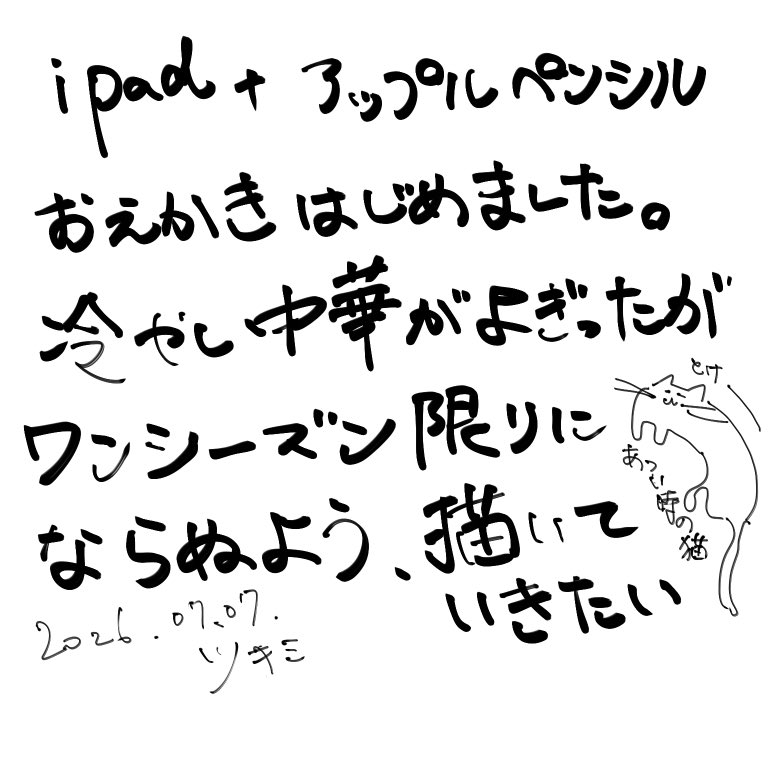 ipad + アップルペンシル
おえかきはじめました。
冷やし中華がよぎったが
ワンシーズン限りに
ならぬよう、描いて
いきたい
2026.07.07.
ツキミ
とけ
あつい時の猫